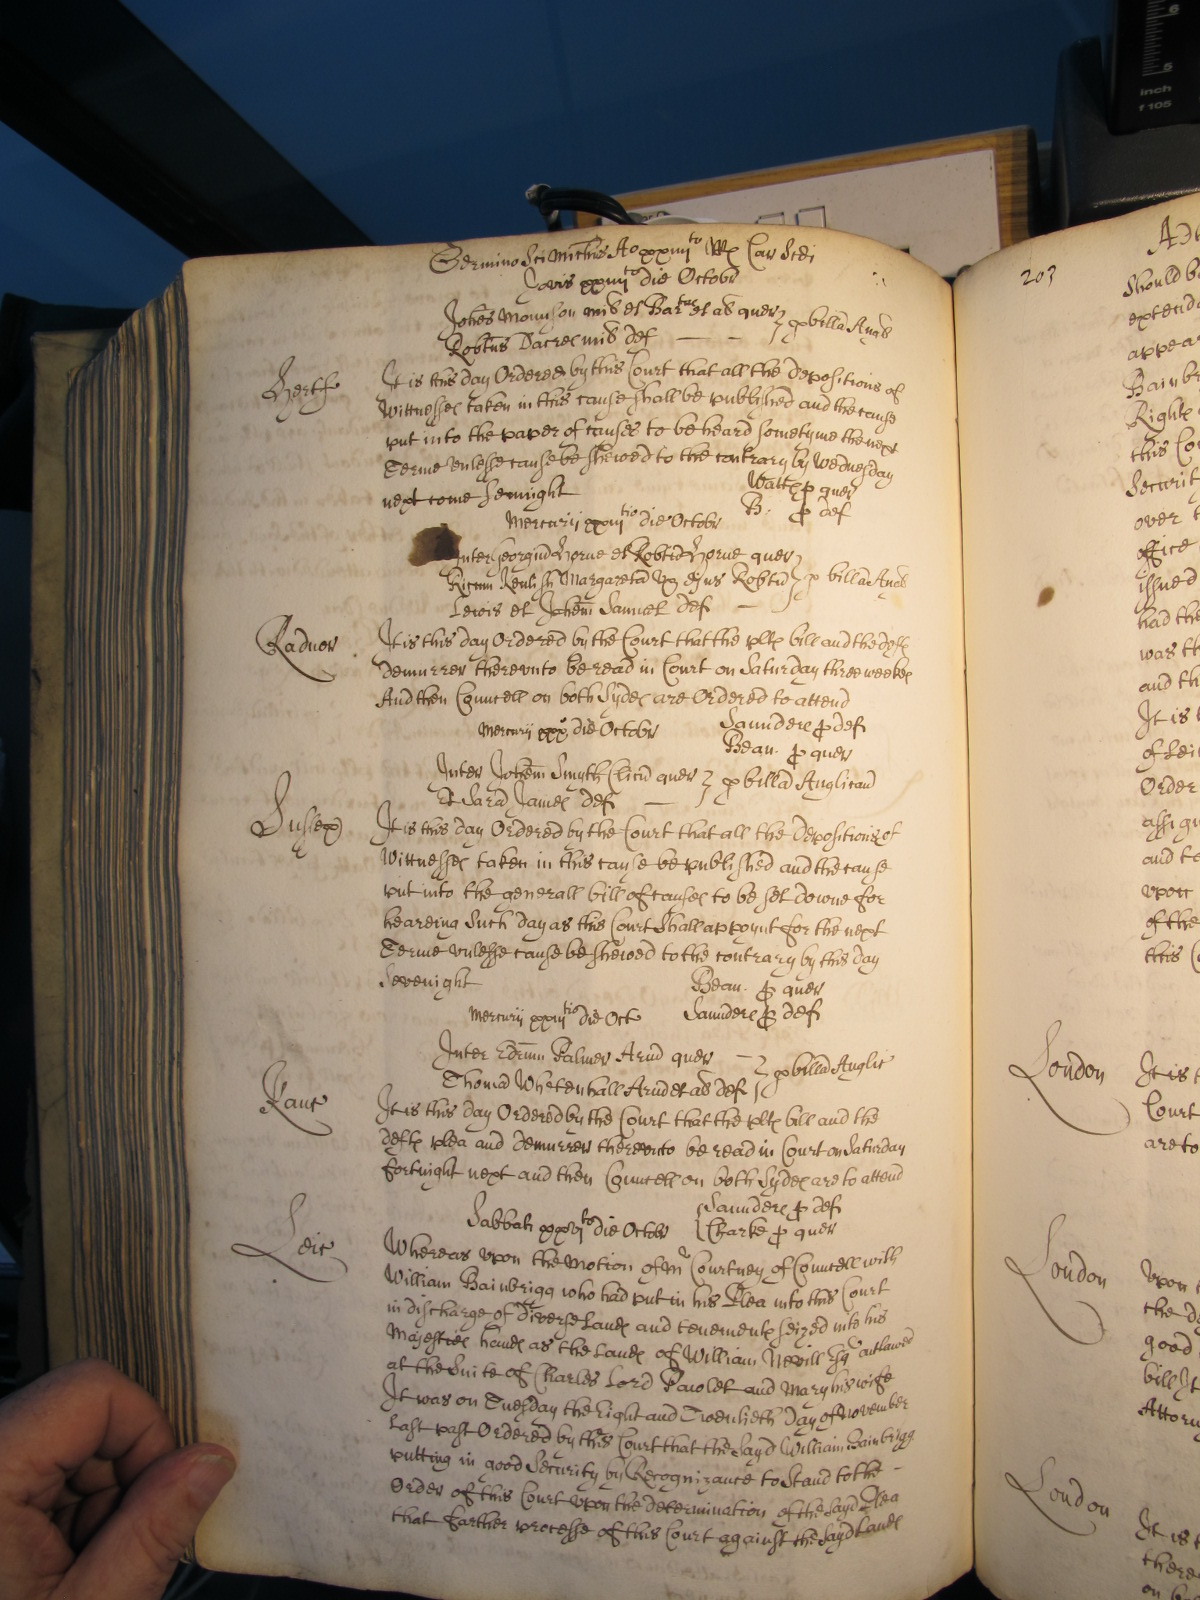 Termino Sci Michis Ao xxiiiito RRs Car Scdi
Jovis xxiiiito die Octobr
Johes Mounson mil et Bartus et al quer } p billa Angl
Robtus Dacres mil def
Hertf
It is this day Ordered by this Court that all the depositions of
Wittnesses taken in this cause shall be published and the cause
put into the paper of causes to be heard sometyme the next
Terme unlesse cause be shewed to the contrary by Wednesday
next come Sennight
Watts p quer
B. p def
Mercurij die Octobr
Inter Georgiu Horne et Robtu Horne quer } p billa Angl
Margareta Ux ejus Robtu
Lewis et Johem Samuel def
Radnor
It is this day Ordered by the Court that the plts bill and the defts
demurrer thereunto be read in Court on Saturday three weekes
And then Councell on both Sydes are Ordered to attend
Saunders p def
Bean. p quer
Mercurij xxx die Octobr
Inter Johem Smyth Clicu quer } p billa Anglicau
Et Sara James def
Sussex
It is this day Ordered by the Court that all the depositions of
Wittnesses taken in this cause be published and the cause
put into the generall bill of causes to be set downe for
hearding Such day as this Court shall appoynt for the next
Terme unlesse cause be shewed to the contrary by this day
Sevenight
Bean. p quer
Saunders p def
Mercurij die Oct
Inter Edrum Palmer Armd quer } p billa Anglic
Thoma Whetenhall Armd et al def
Kanc
It is this day Ordered by the Court that the plts bill and the
defts plea and demurrer thereunto be read in Court on Saturday
fortnight next and then Councell on both Sydes are to attend
Saunders p def
Clarke p quer
Sabbati xxvito die Octobr
Leic
Whereas upon the Motion of Mr Courtney of Councell with
William Bainbrigg who had put in his Plea into this Court
in discharge of diverse Lands and tenements seized into his
Majesties hands as the Lands of William Nevill Esq outlawed
at the Suite of Charles Lord Pawlet and Mary his wife
It was on Tuesday the Eight and Twentieth day of November
Last past Ordered by this Court that the sayd William Bainbrigg
putting in good Security by Recognizance to Stand to the
Order of this Court upon the determination of the sayd Plea
that further processe of this Court against the sayd Lands
203
should b
extend
appear
Bainbr
Right
this Cou
Securit
over t
office
issued
had the
was th
and th
It is
of Lei
Order
assign
and te
upon
of the
this C
London
It is t
Court
are to
London
Upon t
the d
good
bill It
Attorn
London
It is t
there
on b
6
5
inch
f 105